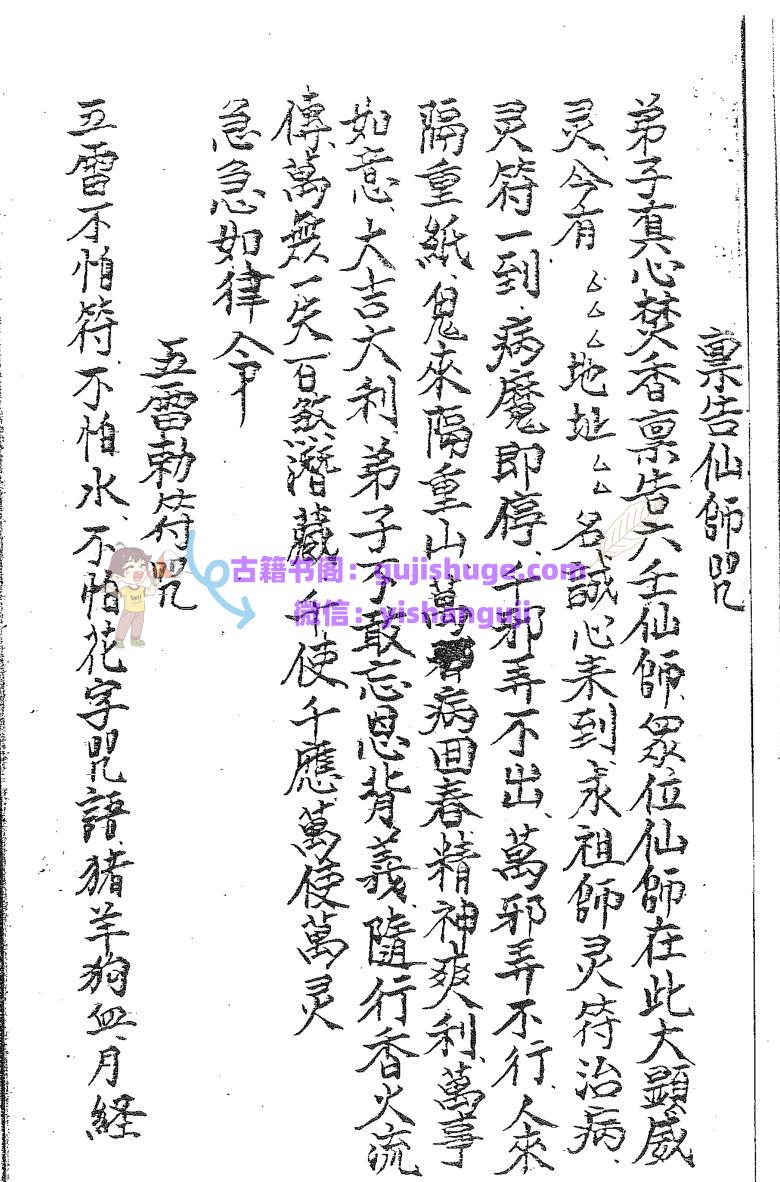 稟告仙師咒
弟子真心焚香稟告六壬仙師、眾位仙師在此大顯威
灵、今有厶厶厶地址厶厶名誠心来到、求祖師灵符治病、
灵符一到、病魔即停、千邪弄不出、萬邪弄不行、人來
隔重紙、鬼來隔重山、萬病回春、精神爽利、萬亨
如意、大吉大利、弟子不敢忘恩背義、隨行香火流
傳、萬無一失百煞潛藏、千使千應萬使萬灵
急急如律令
五雷勅符咒
五雷不怕符、不怕水、不怕花字咒語、猪羊狗血、月経
古籍书阁：gujishuge.com
微信：yishanguji
Sell